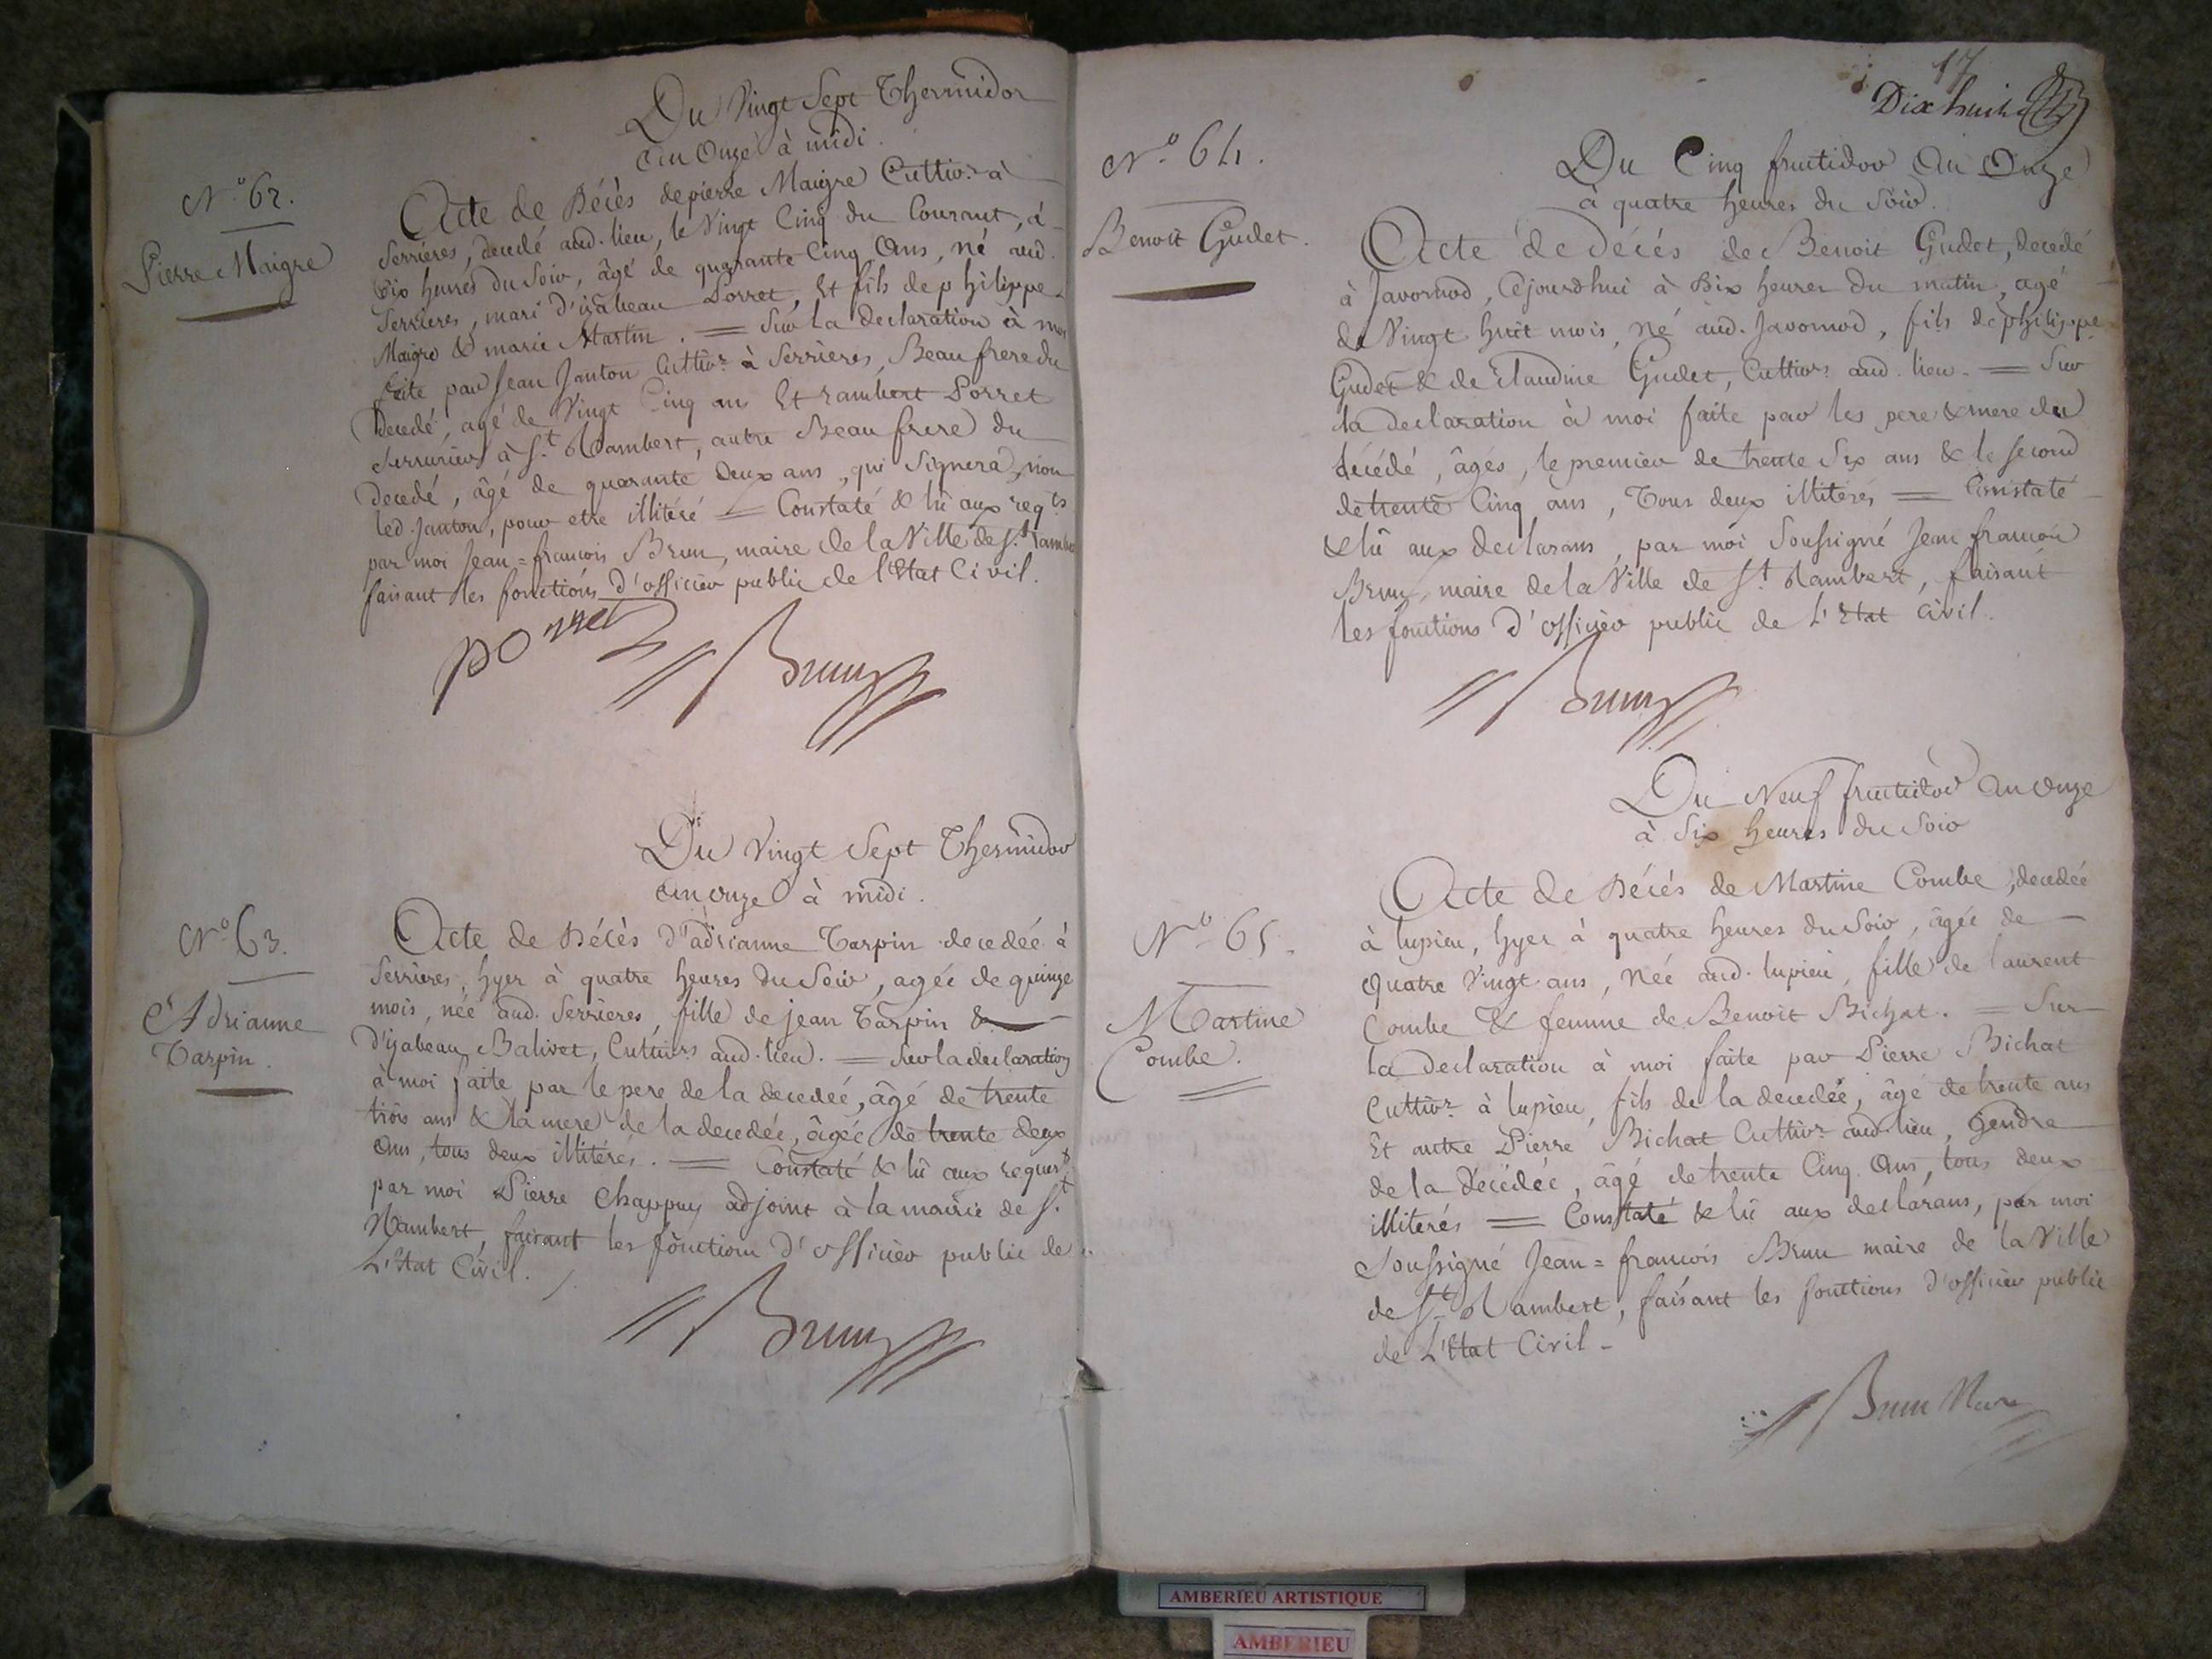 Du Vingt Sept Thermidor
an Onze à midi.
N.º 62.
Pierre Maigre
Acte de Décès de pierre Maigre Cultiv.r à
Serrieres, decedé aud. lieu, le Vingt Cinq du Courant, à
Dix heures du Soir, âgé de quarante Cinq Ans, né aud.
Serrieres, mari d'izabeau Porret, Et fils de philippe
Maigre & marie Martin. = Sur la declaration à moi
faite par Jean Janton Cultiv.r à Serrieres, Beau frere du
Decedé, agé de Vingt Cinq ans Et rambert Porret
Serrurier à S.t Rambert, autre Beau frere du
Decedé, âgé de quarante Deux ans, qui Signera, non
led. Janton, pour etre illitéré = Constaté & lû aux req.ts
par moi Jean=francois Brun, maire de la Ville de S.t rambert
faisant les fonctions d'officier public de l'Etat Civil.
porret
Brun
Du Vingt Sept Thermidor
an onze à midi.
N.º 63.
Adrianne
Tarpin.
Acte de Décès d'adrianne Tarpin decedée à
Serrieres, hyer à quatre heures du Soir, agée de quinze
mois, née aud. Serrieres, fille de jean Tarpin &
D'izabeau Balivet, Cultiv.rs aud. lieu. = Sur la declaration
à moi faite par le pere de la decedée, âgé de trente
trois ans & la mere de la decedée, âgée de trente deux
ans, tous deux illitérés. = Constaté & lû aux requer.t
par moi Pierre Chappuy adjoint à la mairie de S.t
Rambert, faisant les fonctions d'officier public de
L'Etat Civil.
Brun
17
Dix huit
N.º 64.
Benoit Gudet.
Du Cinq fructidor An Onze
à quatre heures du Soir.
Acte de décés de Benoit Gudet, decedé
à Javornod, Cejourdhui à Dix heures du matin, agé
de Vingt huit mois, né aud. Javornod, fils de philippe
Gudet & de Claudine Gudet, Cultiv.rs aud. lieu. = Sur
la declaration à moi faite par les pere & mere du
décédé, âgés, le premier de trente Six ans & le second
de trente Cinq ans, Tous deux illiterés = Constaté
& lû aux declarans, par moi Soussigné Jean francois
Brun, maire de la Ville de S.t Rambert, faisant
les fonctions d'officier public de L'Etat Civil.
Brun
Du Neuf fructidor An onze
à Six heures du Soir
N.º 65.
Martine
Combe.
Acte de Décés de Martine Combe, decedée
à lupieu, hyer à quatre heures du Soir, âgée de
Quatre Vingt ans, Née aud. lupieu, fille de laurent
Combe & femme de Benoit Bichat. = Sur
la declaration à moi faite par Pierre Bichat
Cultiv.r à lupieu, fils de la decedée, âgé de trente ans
Et autre Pierre Bichat Cultiv.r aud. lieu, Gendre
de la Décédée, âgé de trente Cinq Ans, tous deux
illiterés = Constaté & lû aux declarans, par moi
Soussigné Jean=francois Brun maire de la Ville
de S.t Rambert, faisant les fonctions d'officier public
de L'Etat Civil.
Brun Maire
AMBERIEU ARTISTIQUE
AMBERIEU